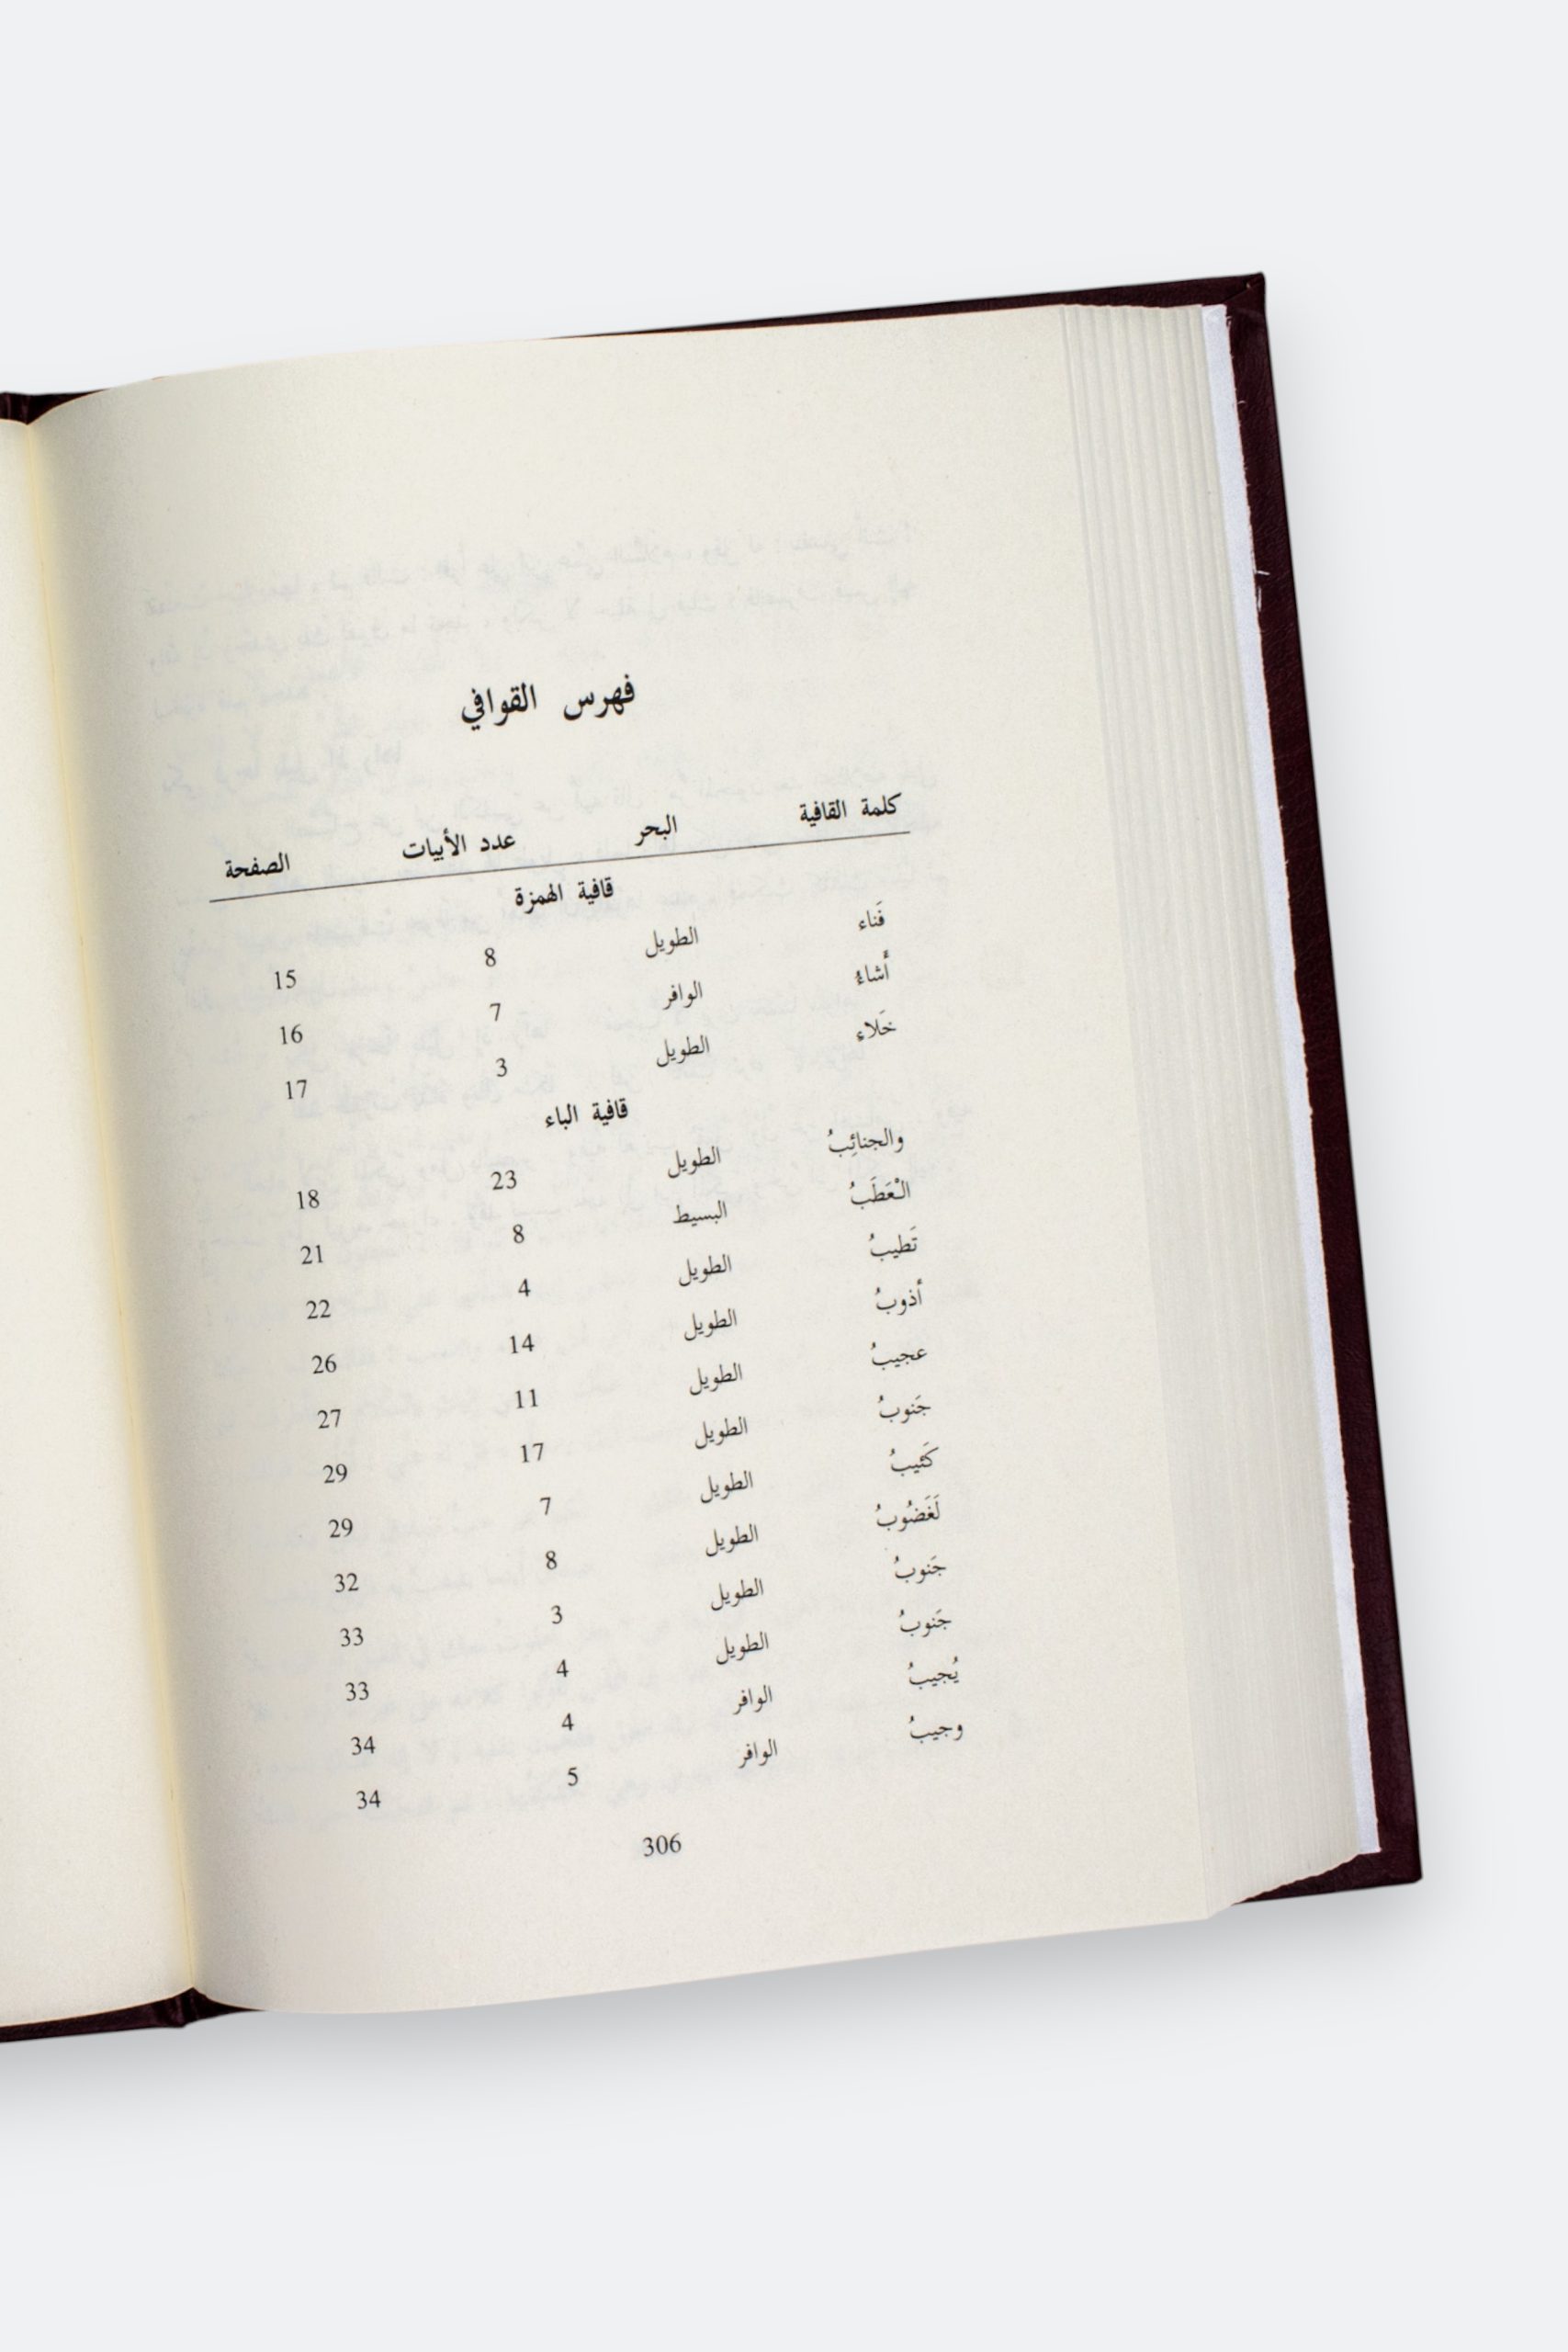 فهرس القوافي
كلمة القافية البحر عدد الأبيات الصفحة
قافية الهمزة
فَناء الطويل 8 15
أَشاءُ الوافر 7 16
خَلاء الطويل 3 17
قافية الباء
والجنائِبُ الطويل 23 18
الْعَطَبُ البسيط 8 21
تَطيبُ الطويل 4 22
أذوبُ الطويل 14 26
عجيبُ الطويل 11 27
جَنوبُ الطويل 17 29
كَئيبُ الطويل 7 29
لَغَضُوبُ الطويل 8 32
جَنوبُ الطويل 3 33
جَنوبُ الطويل 4 33
يُجيبُ الوافر 4 34
وجيبُ الوافر 5 34
306